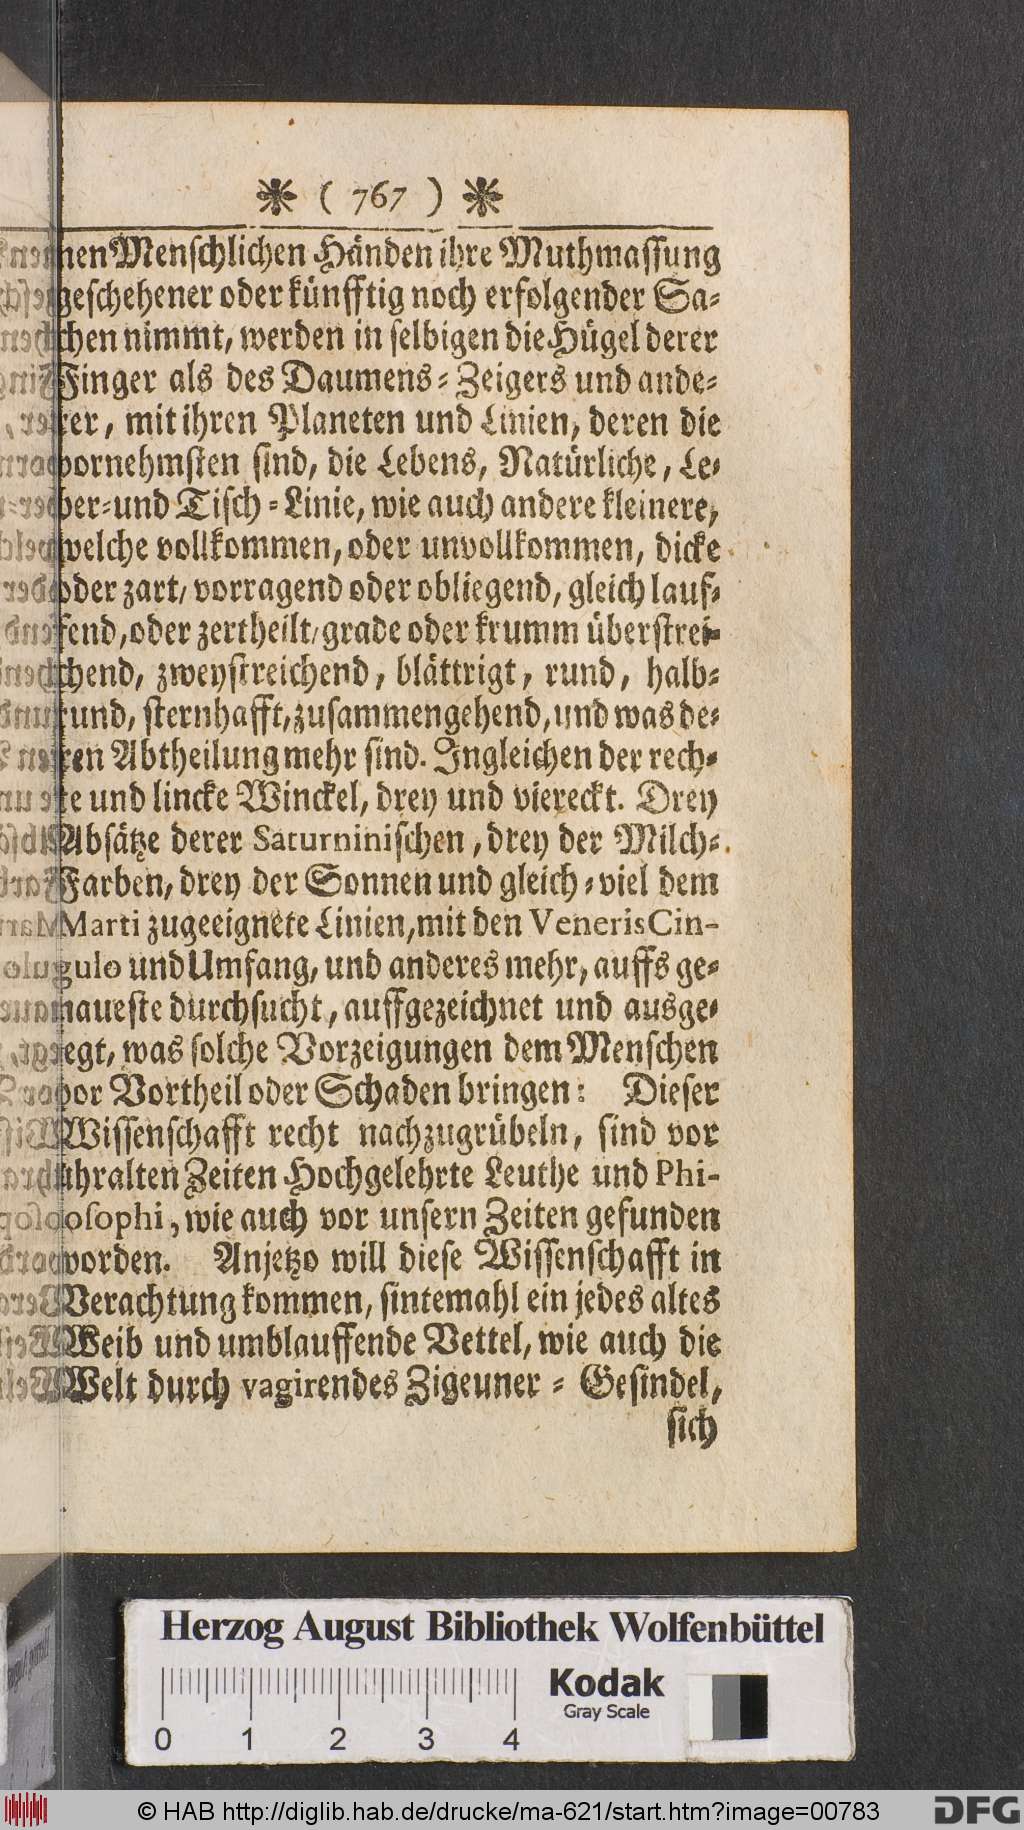 ❋ ( 767 ) ❋
nen Menschlichen Händen ihre Muthmassung
geschehener oder künfftig noch erfolgender Sa-
chen nimmt, werden in selbigen die Hügel derer
Finger als des Daumens-Zeigers und ande-
rer, mit ihren Planeten und Linien, deren die
vornehmsten sind, die Lebens, Natürliche, Le-
ber-und Tisch-Linie, wie auch andere kleinere,
welche vollkommen, oder unvollkommen, dicke
oder zart, vorragend oder obliegend, gleich lauf-
fend, oder zertheilt, grade oder krumm überstrei-
chend, zweystreichend, blättrigt, rund, halb-
rund, sternhafft, zusammengehend, und was de-
ren Abtheilung mehr sind. Ingleichen der rech-
te und lincke Winckel, drey und viereckt. Drey
Absätze derer Saturninischen, drey der Milch-
Farben, drey der Sonnen und gleich-viel dem
Marti zugeeignete Linien, mit den Veneris Cin-
gulo und Umfang, und anderes mehr, auffs ge-
naueste durchsucht, auffgezeichnet und ausge-
legt, was solche Vorzeigungen dem Menschen
vor Vortheil oder Schaden bringen: Dieser
Wissenschafft recht nachzugrübeln, sind vor
uhralten Zeiten Hochgelehrte Leuthe und Phi-
losophi, wie auch vor unsern Zeiten gefunden
worden. Anjetzo will diese Wissenschafft in
Verachtung kommen, sintemahl ein jedes altes
Weib und umblauffende Vettel, wie auch die
Welt durch vagirendes Zigeuner-Gesindel,
sich
Herzog August Bibliothek Wolfenbüttel
Kodak
Gray Scale
0 1 2 3 4
© HAB http://diglib.hab.de/drucke/ma-621/start.htm?image=00783
DFG